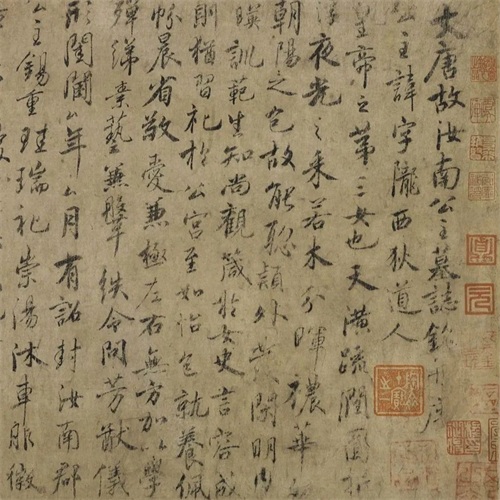 大唐故汝南公主墓誌銘并序
公主諱字隴西狄道人
皇帝之第三女也天潢疏潤圓折
浮夜光之采若木分暉穠華
朝陽之色故能聡穎外發閑明内
暎訓範生知尚觀箴於女史言容成
則猶習礼於公宮至如怡色就養佩
帉晨省敬愛兼極左右無方加以學
殫綈素藝兼鞶紩令問芳猷儀
形閨閫厶年厶月有詔封汝南郡
公主錫重珪瑞礼崇湯沐車服徽